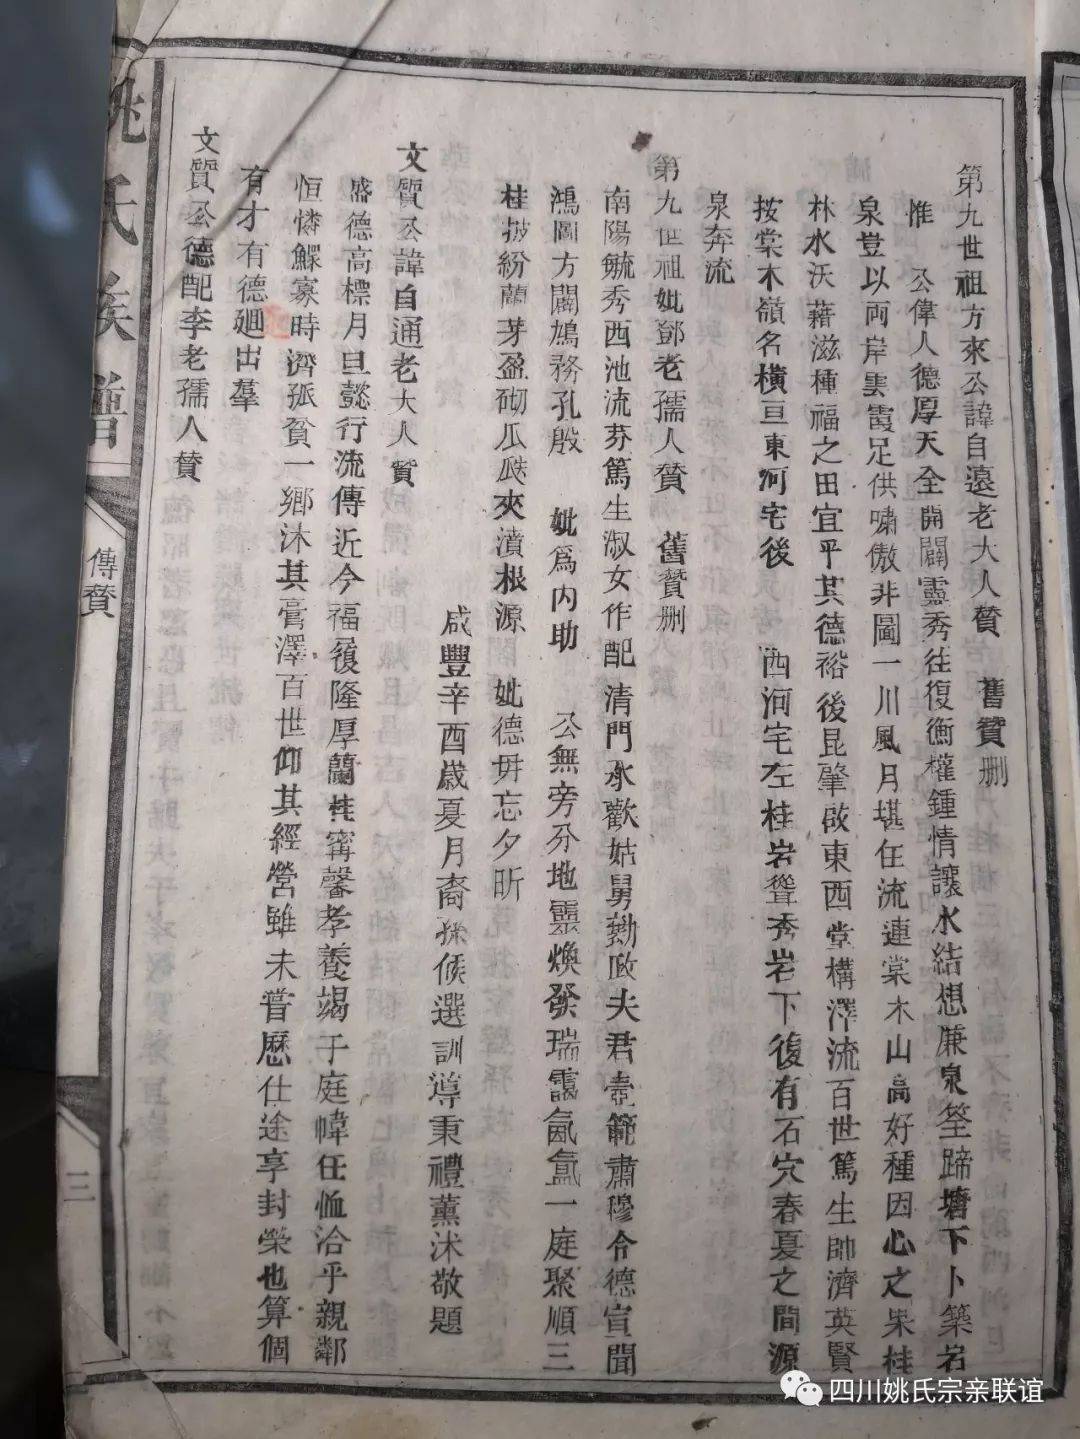 第九世祖方來公諱自遠老大人贊　舊贊删
惟　公偉人德厚天全開闢靈秀往復衡權鍾情讓水結想廉泉筌蹄塘下卜築岩
泉豈以両岸雲霞足供嘯傲非圖一川風月堪任流連棠木山高好種因心之果桂
林水沃藉滋種福之田宜乎其德裕後昆肇啟東西堂構澤流百世篤生帥濟英賢
按棠木嶺名橫亘東河宅後　西河宅左桂岩聳秀岩下復有石穴春夏之間源
泉奔流
第九世祖妣鄧老孺人贊　舊贊删
南陽毓秀西池流芬篤生淑女作配清門承歡姑舅勷政夫君壼範肅穆令德宣聞
鴻圖方闢鳩務孔殷　妣爲內助　公無旁分地靈煥發瑞靄氤氳一庭聚順三
桂披紛蘭芽盈砌瓜瓞夾瀆根源　妣德毋忘夕昕
咸豐辛酉歲夏月裔孫候選訓導秉禮薰沐敬題
文質公諱自通老大人贊
盛德高標月旦懿行流傳近今福履隆厚蘭桂甯馨孝養竭于庭幃任恤洽乎親鄰
恒憐鰥寡時濟孤貧一鄉沐其膏澤百世仰其經營雖未嘗歷仕途享封榮也算個
有才有德迥出羣
文質公德配李老孺人贊
姚氏族譜
傳贊
三
四川姚氏宗亲联谊